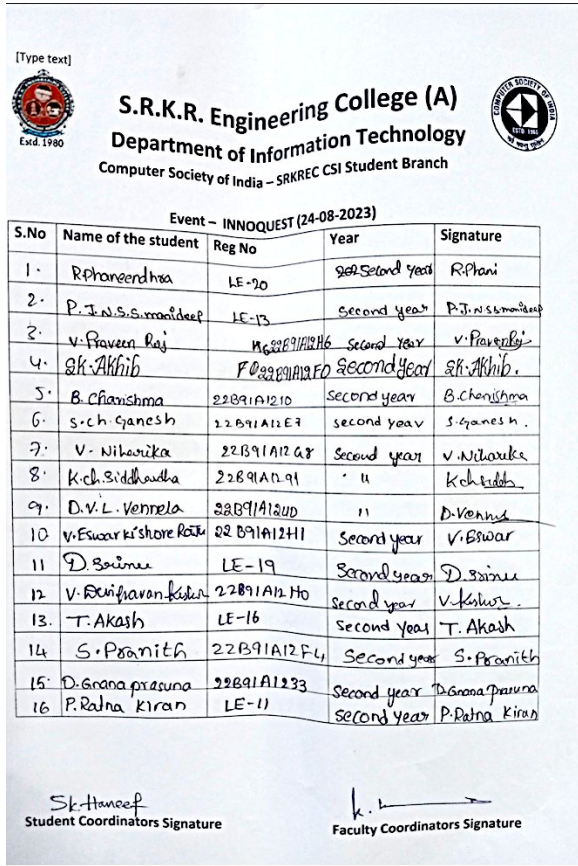 [Type text]
Estd. 1980
COMPUTER SOCIETY OF INDIA
ESTD 1965
S.R.K.R. Engineering College (A)
Department of Information Technology
Computer Society of India – SRKREC CSI Student Branch
Event – INNOQUEST (24-08-2023)
S.No Name of the student Reg No Year Signature
1. R.Phaneendhra LE-20 Second year R.Phani
2. P.J.N.S.S.manideep LE-13 Second year P.J.N.S.S manideep
3. V. Praveen Raj 22B91A12H6 Second Year V. Praveen Raj
4. SK. Akhib F0 22B91A12F0 Second Year SK. Akhib.
5. B. Charishma 22B91A1210 Second year B. Charishma
6. S.ch. Ganesh 22B91A12E7 second year S. Ganesh.
7. V. Niharika 22B91A12G8 Second year V. Niharika
8. K.ch. Siddhardha 22B91A1291 " K.ch
9. D.V.L. Vennela 22B91A12U0 " D.
10 V. Eswar kishore Raju 22B91A12H1 Second year V. Eswar
11 D. Srinu LE-19 Second Year D. Srinu
12 V. 22B91A12H0 Second year V. Kishor.
13. T. Akash LE-16 Second Year T. Akash
14 S. Pranith 22B91A12F4 Second year S. Pranith
15. D. Gnana prasuna 22B91A1233 Second year D. Gnana prasuna
16 P. Ratna Kiran LE-11 Second year P. Ratna Kiran
Sk. Haneef
Student Coordinators Signature
Faculty Coordinators Signature